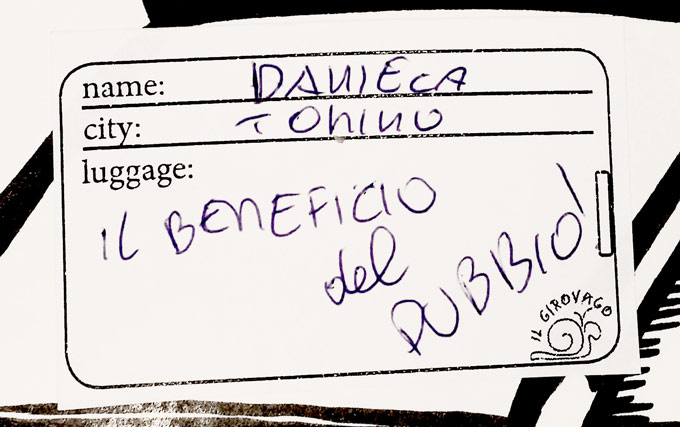 name: DANIELA
city: TORINO
luggage:
IL BENEFICIO
del
DUBBIO!
IL GIROVAGO